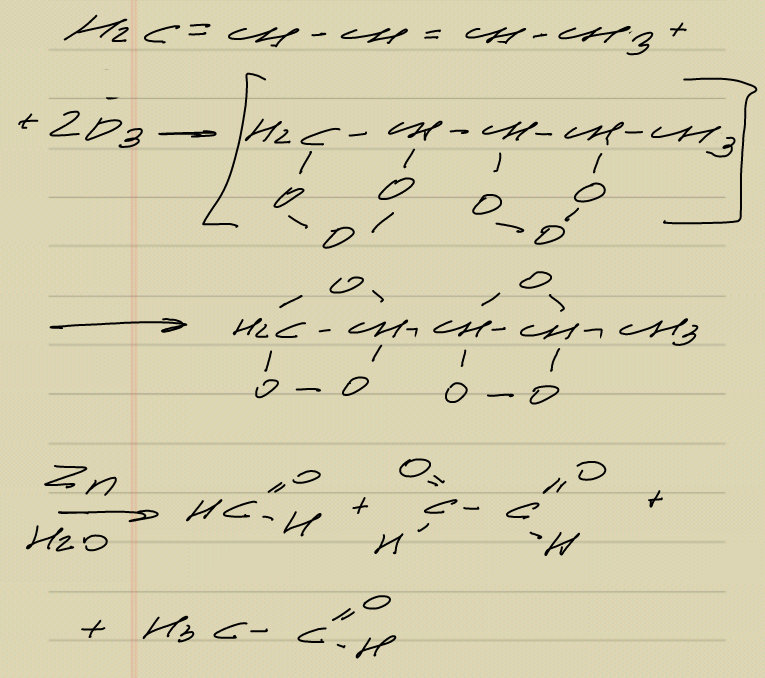 H2C=CH-CH=CH-CH3 +
+ 2O3 → [H2C-CH-CH-CH-CH3]
O O O O
O O
O O
→ H2C-CH-CH-CH-CH3
O-O O-O
Zn O O O
→ HC-H + C-C +
H2O H H
+ H3C-C=O
-H